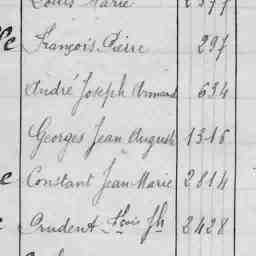 Louis Marie 2577
François Pierre 297
André Joseph Armand 634
Georges Jean Auguste 1316
Constant Jean Marie 2814
Prudent fçois Jh 2428